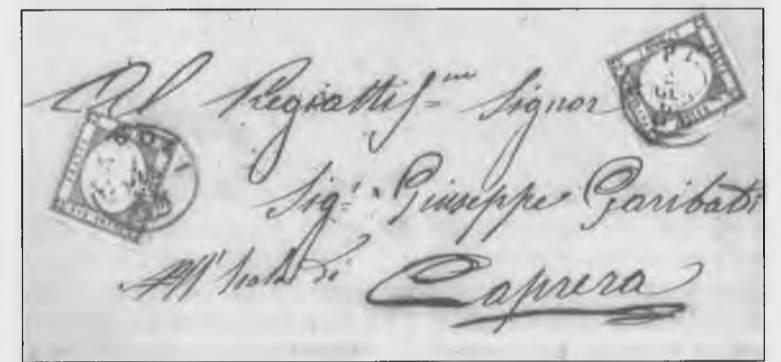 Al Pregiattis.mo Signor
Sig.r Giuseppe Garibaldi
All'Isola di
Caprera